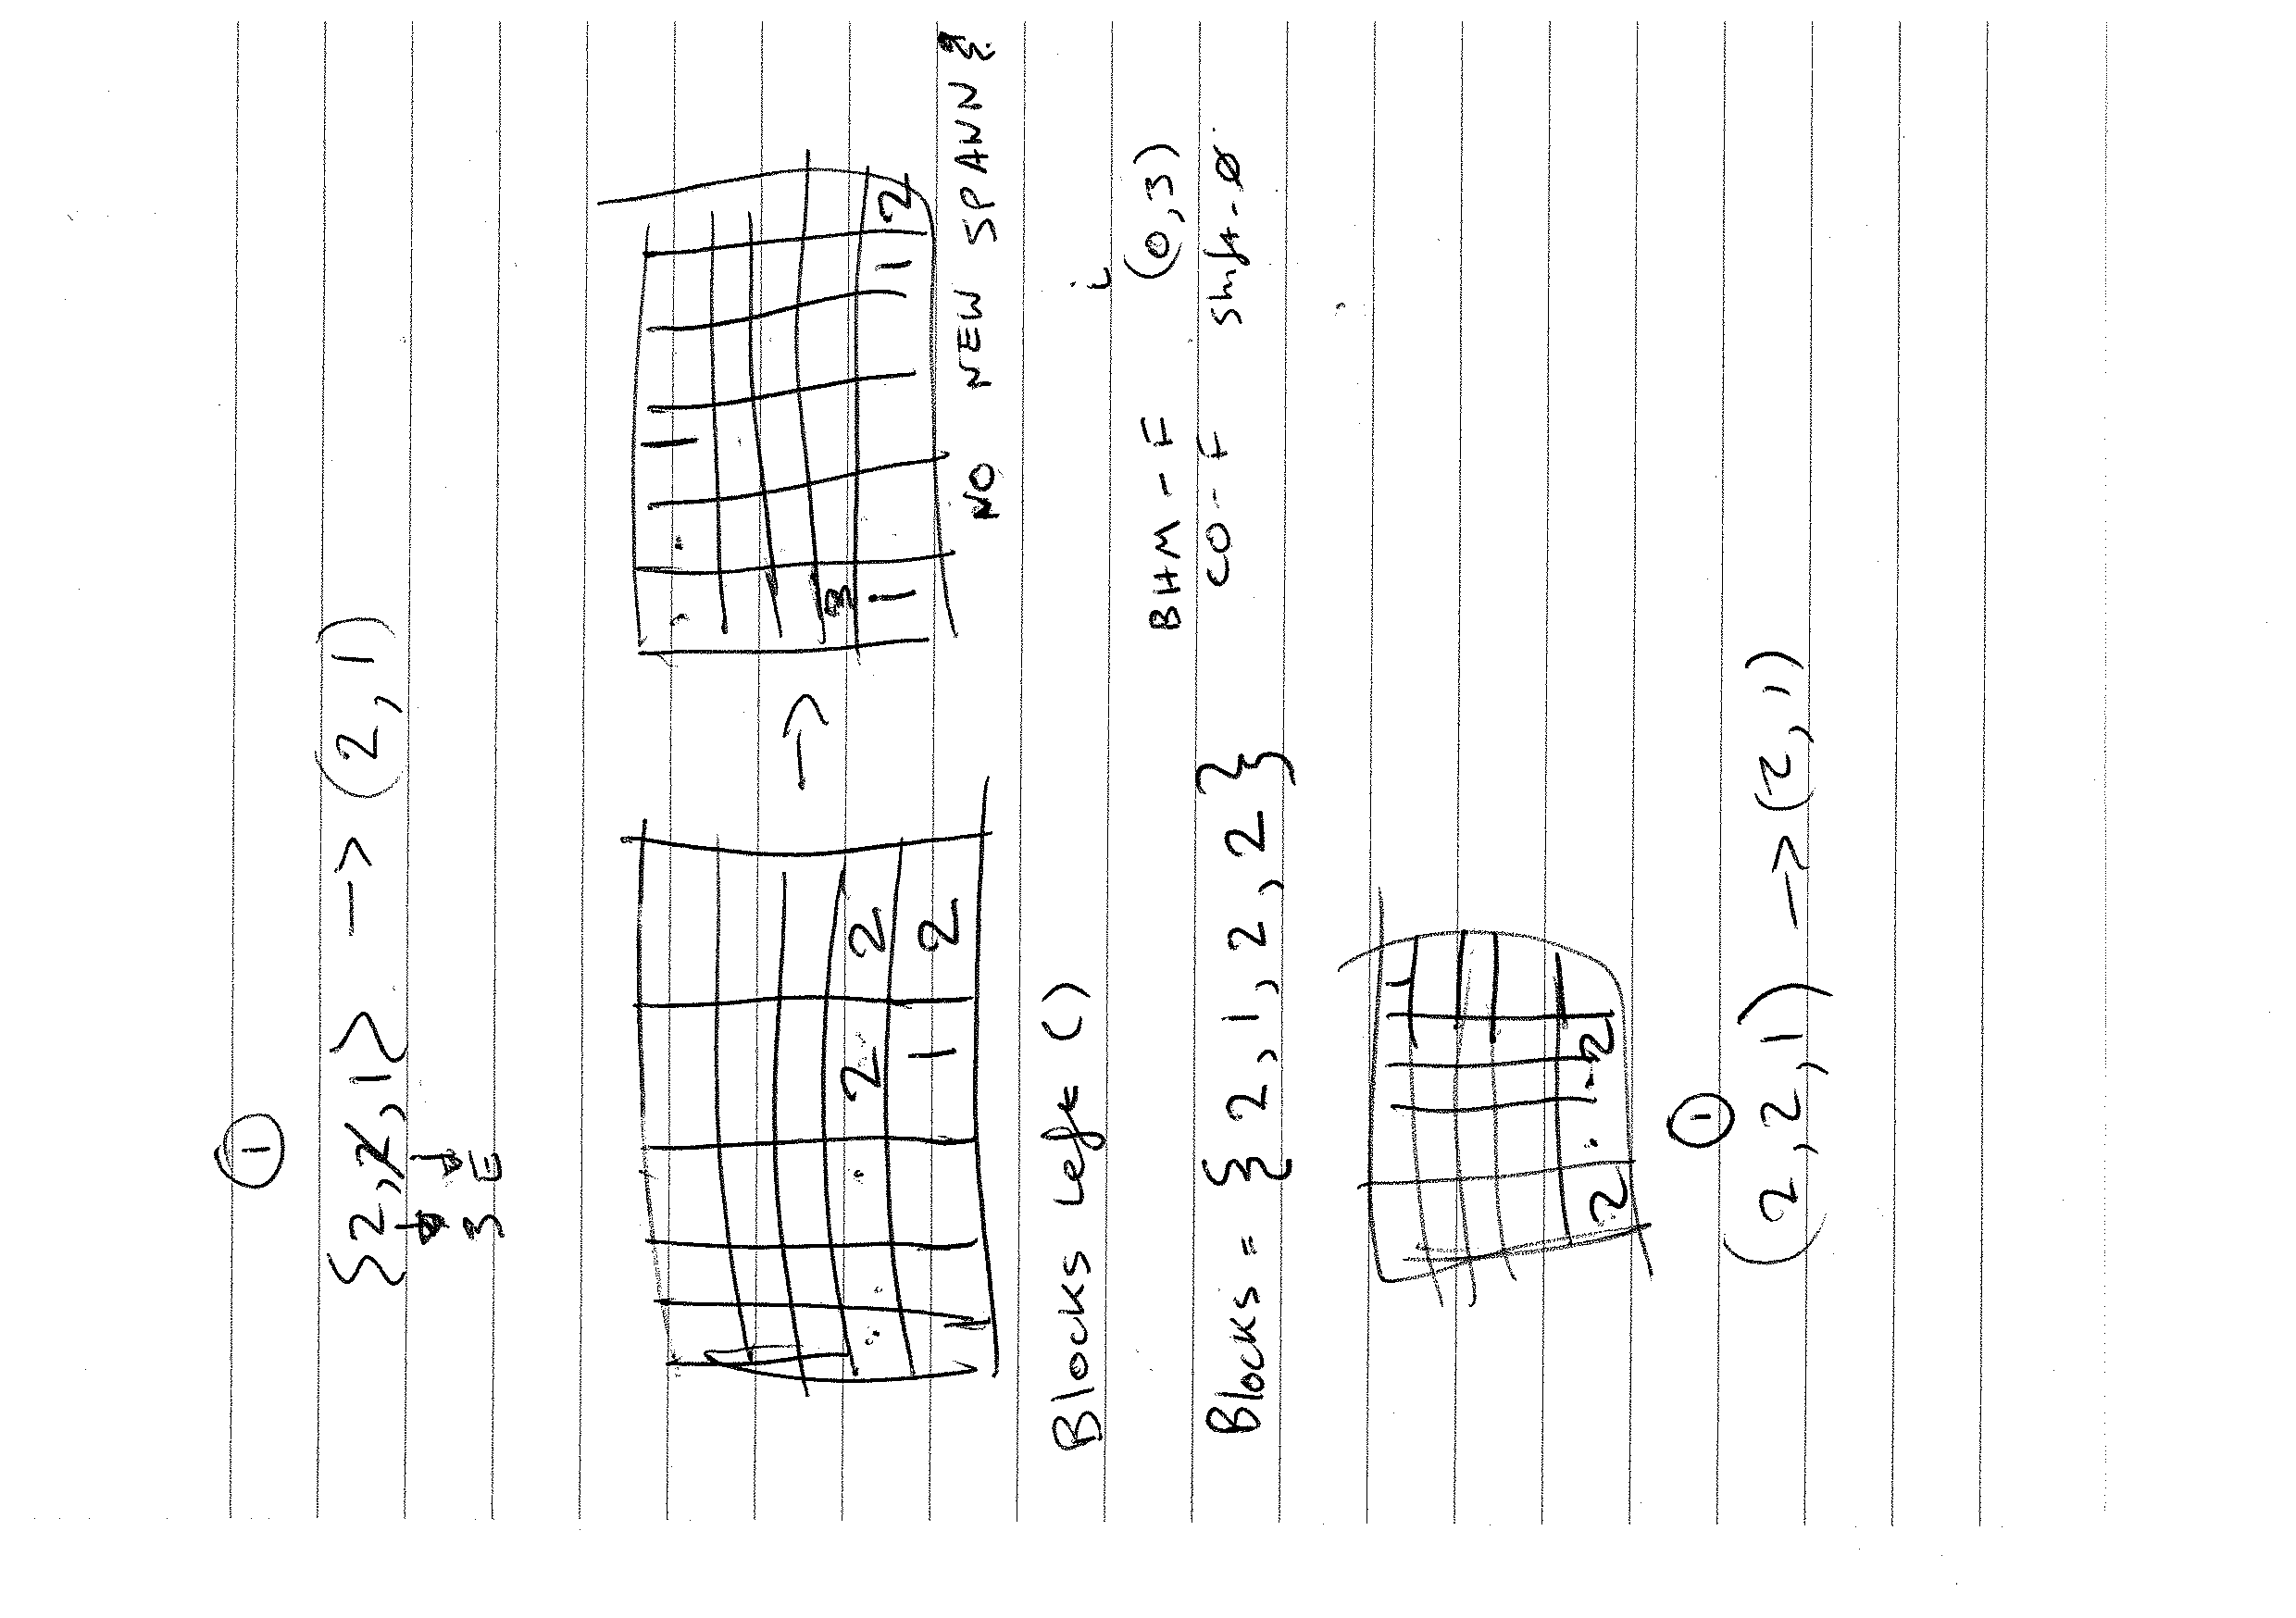 ①
{2,2,1} -> (2,1)
3 E
2 2
2 1
->
1
3
1 1 2
NO NEW SPAWN
Blocks Left ()
i
BHM - F (0,3)
CO - F shift - 0
Blocks = { 2, 1, 2, 2 }
1
2 . . 2
①
(2,2,1) -> (2,1)